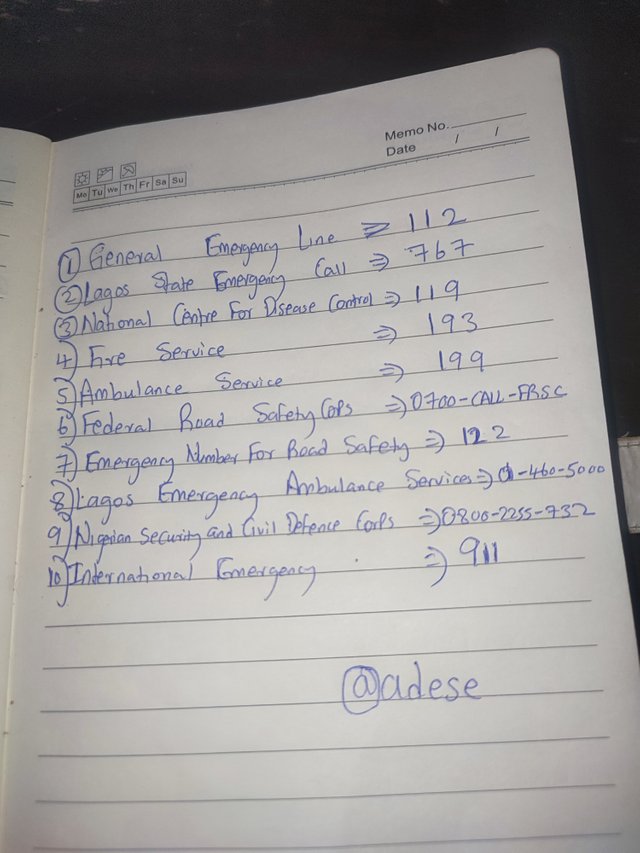 Memo No.
Date / /
Mo Tu We Th Fr Sa Su
1 General Emergency Line => 112
2 Lagos State Emergency Call => 767
3 National Centre For Disease Control => 119
4) Fire Service => 193
5) Ambulance Service => 199
6) Federal Road Safety Corps => 0700-CALL-FRSC
7) Emergency Number For Road Safety => 122
8) Lagos Emergency Ambulance Services => 01-460-5000
9) Nigerian Security and Civil Defence Corps => 0806-2255-732
10) International Emergency => 911
@adese